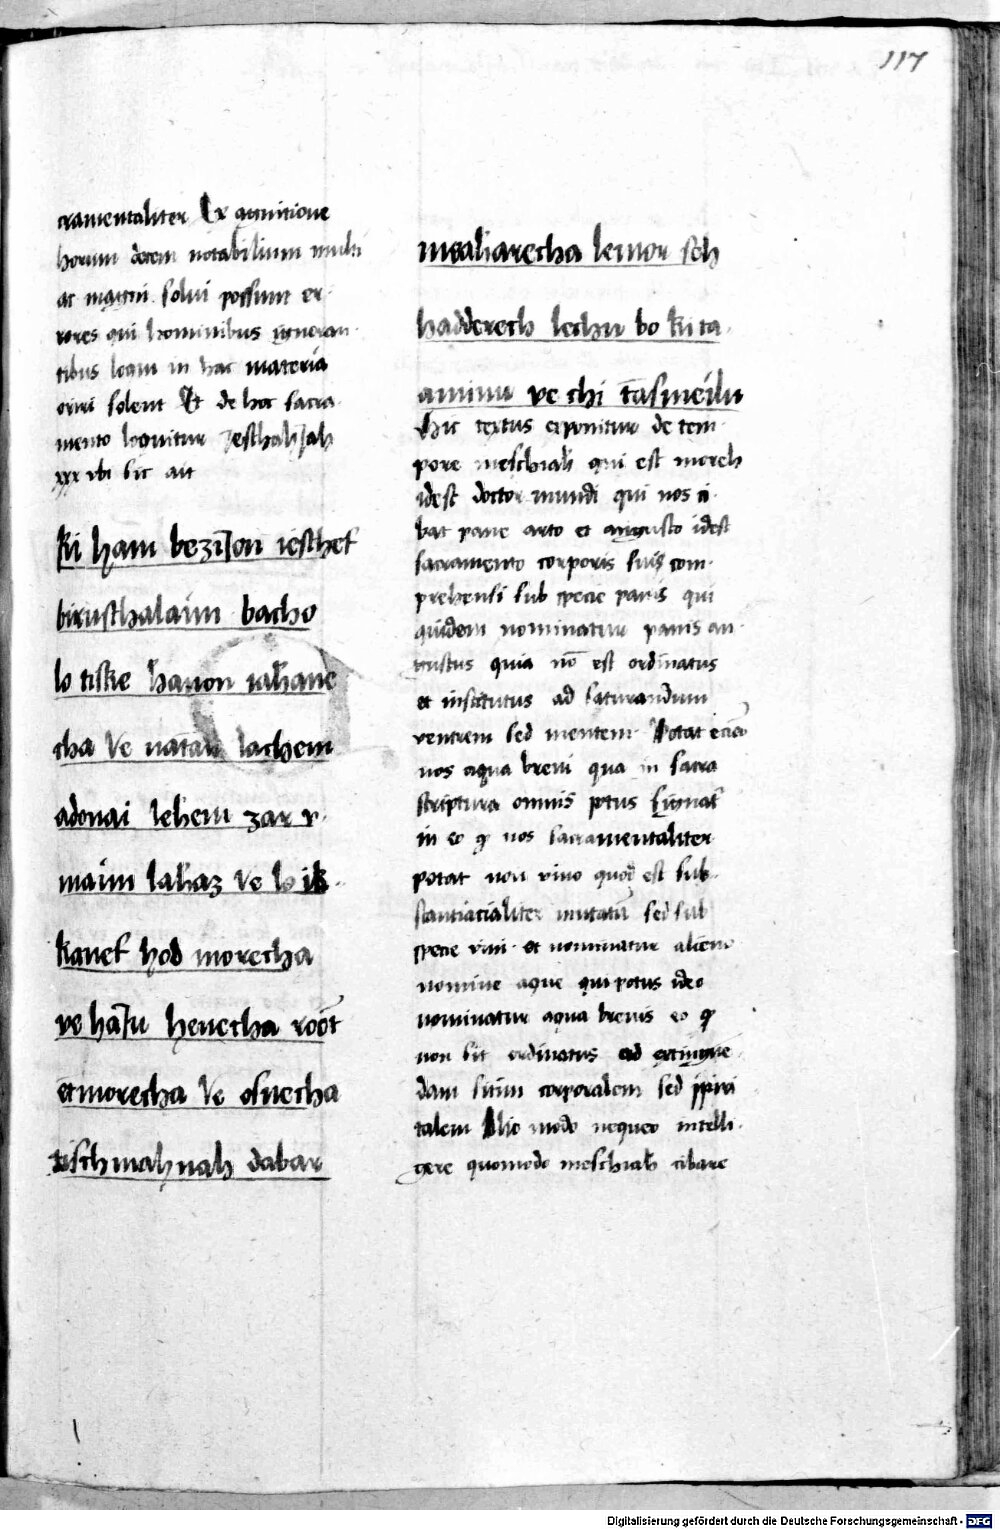 117
cramentaliter Ex agnitione
horum decem notabilium multi
ac magni solui possunt er-
rores qui hominibus ignoran-
tibus legem in hac materia
oriri solent Et de hoc sacra-
mento loquitur Jesthahjah
xxx vbi sic ait
ki ham bezijon iesthef
birusthalaim bacho
lo tiske hanon iahane
cha ve natan lachem
adonai lehem zar v-
maim lahaz ve lo ik-
kanef hod morecha
ve haju henecha root
etmorecha ve osnecha
tischmahnah dabar
meaharecha lemor seh
hadderech lechu bo ki ta-
aminu ve chi tasmeilu
Hic textus exponitur de tem-
pore meschiah qui est moreh
idest doctor mundi qui nos ci-
bat pane arto et angusto idest
sacramento corporis suis com-
prehensi sub specie panis qui
quidem nominatur panis an-
gustus quia nō est ordinatus
et institutus ad saturandum
ventrem sed mentem Potat eciā
nos aqua breui qua in sacra
scriptura omnis potus signat̄
in eo q nos sacramentaliter
potat non vino quod est sub-
stantiacialiter mutatū sed sub
specie vini et nominatur alieno
nomine aque qui potus ideo
nominatur aqua breuis eo q
non sit ordinatus ad extingue-
dam sitim corporalem sed spiri
talem Alio modo nequeo intelli-
gere quomodo meschiah cibare
Digitalisierung gefördert durch die Deutsche Forschungsgemeinschaft - DFG